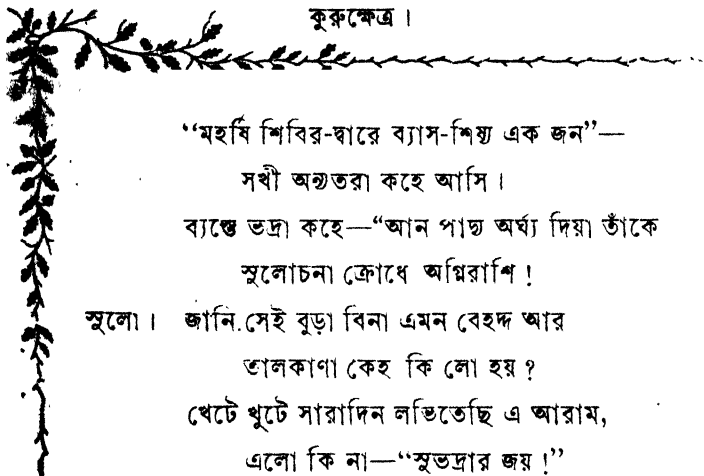 কুরুক্ষেত্র।
“মহর্ষি শিবির-দ্বারে ব্যাস-শিষ্য এক জন”—
সখী অন্যতরা কহে আসি।
ব্যস্তে ভদ্রা কহে—“আন পাদ্য অর্ঘ্য দিয়া তাঁকে
সুলোচনা ক্রোধে অগ্নিরাশি!
সুলো। জানি সেই বুড়া বিনা এমন বেহদ্দ আর
তালকাণা কেহ কি লো হয়?
খেটে খুটে সারাদিন লভিতেছি এ আরাম,
এলো কি না—“সুভদ্রার জয়!”